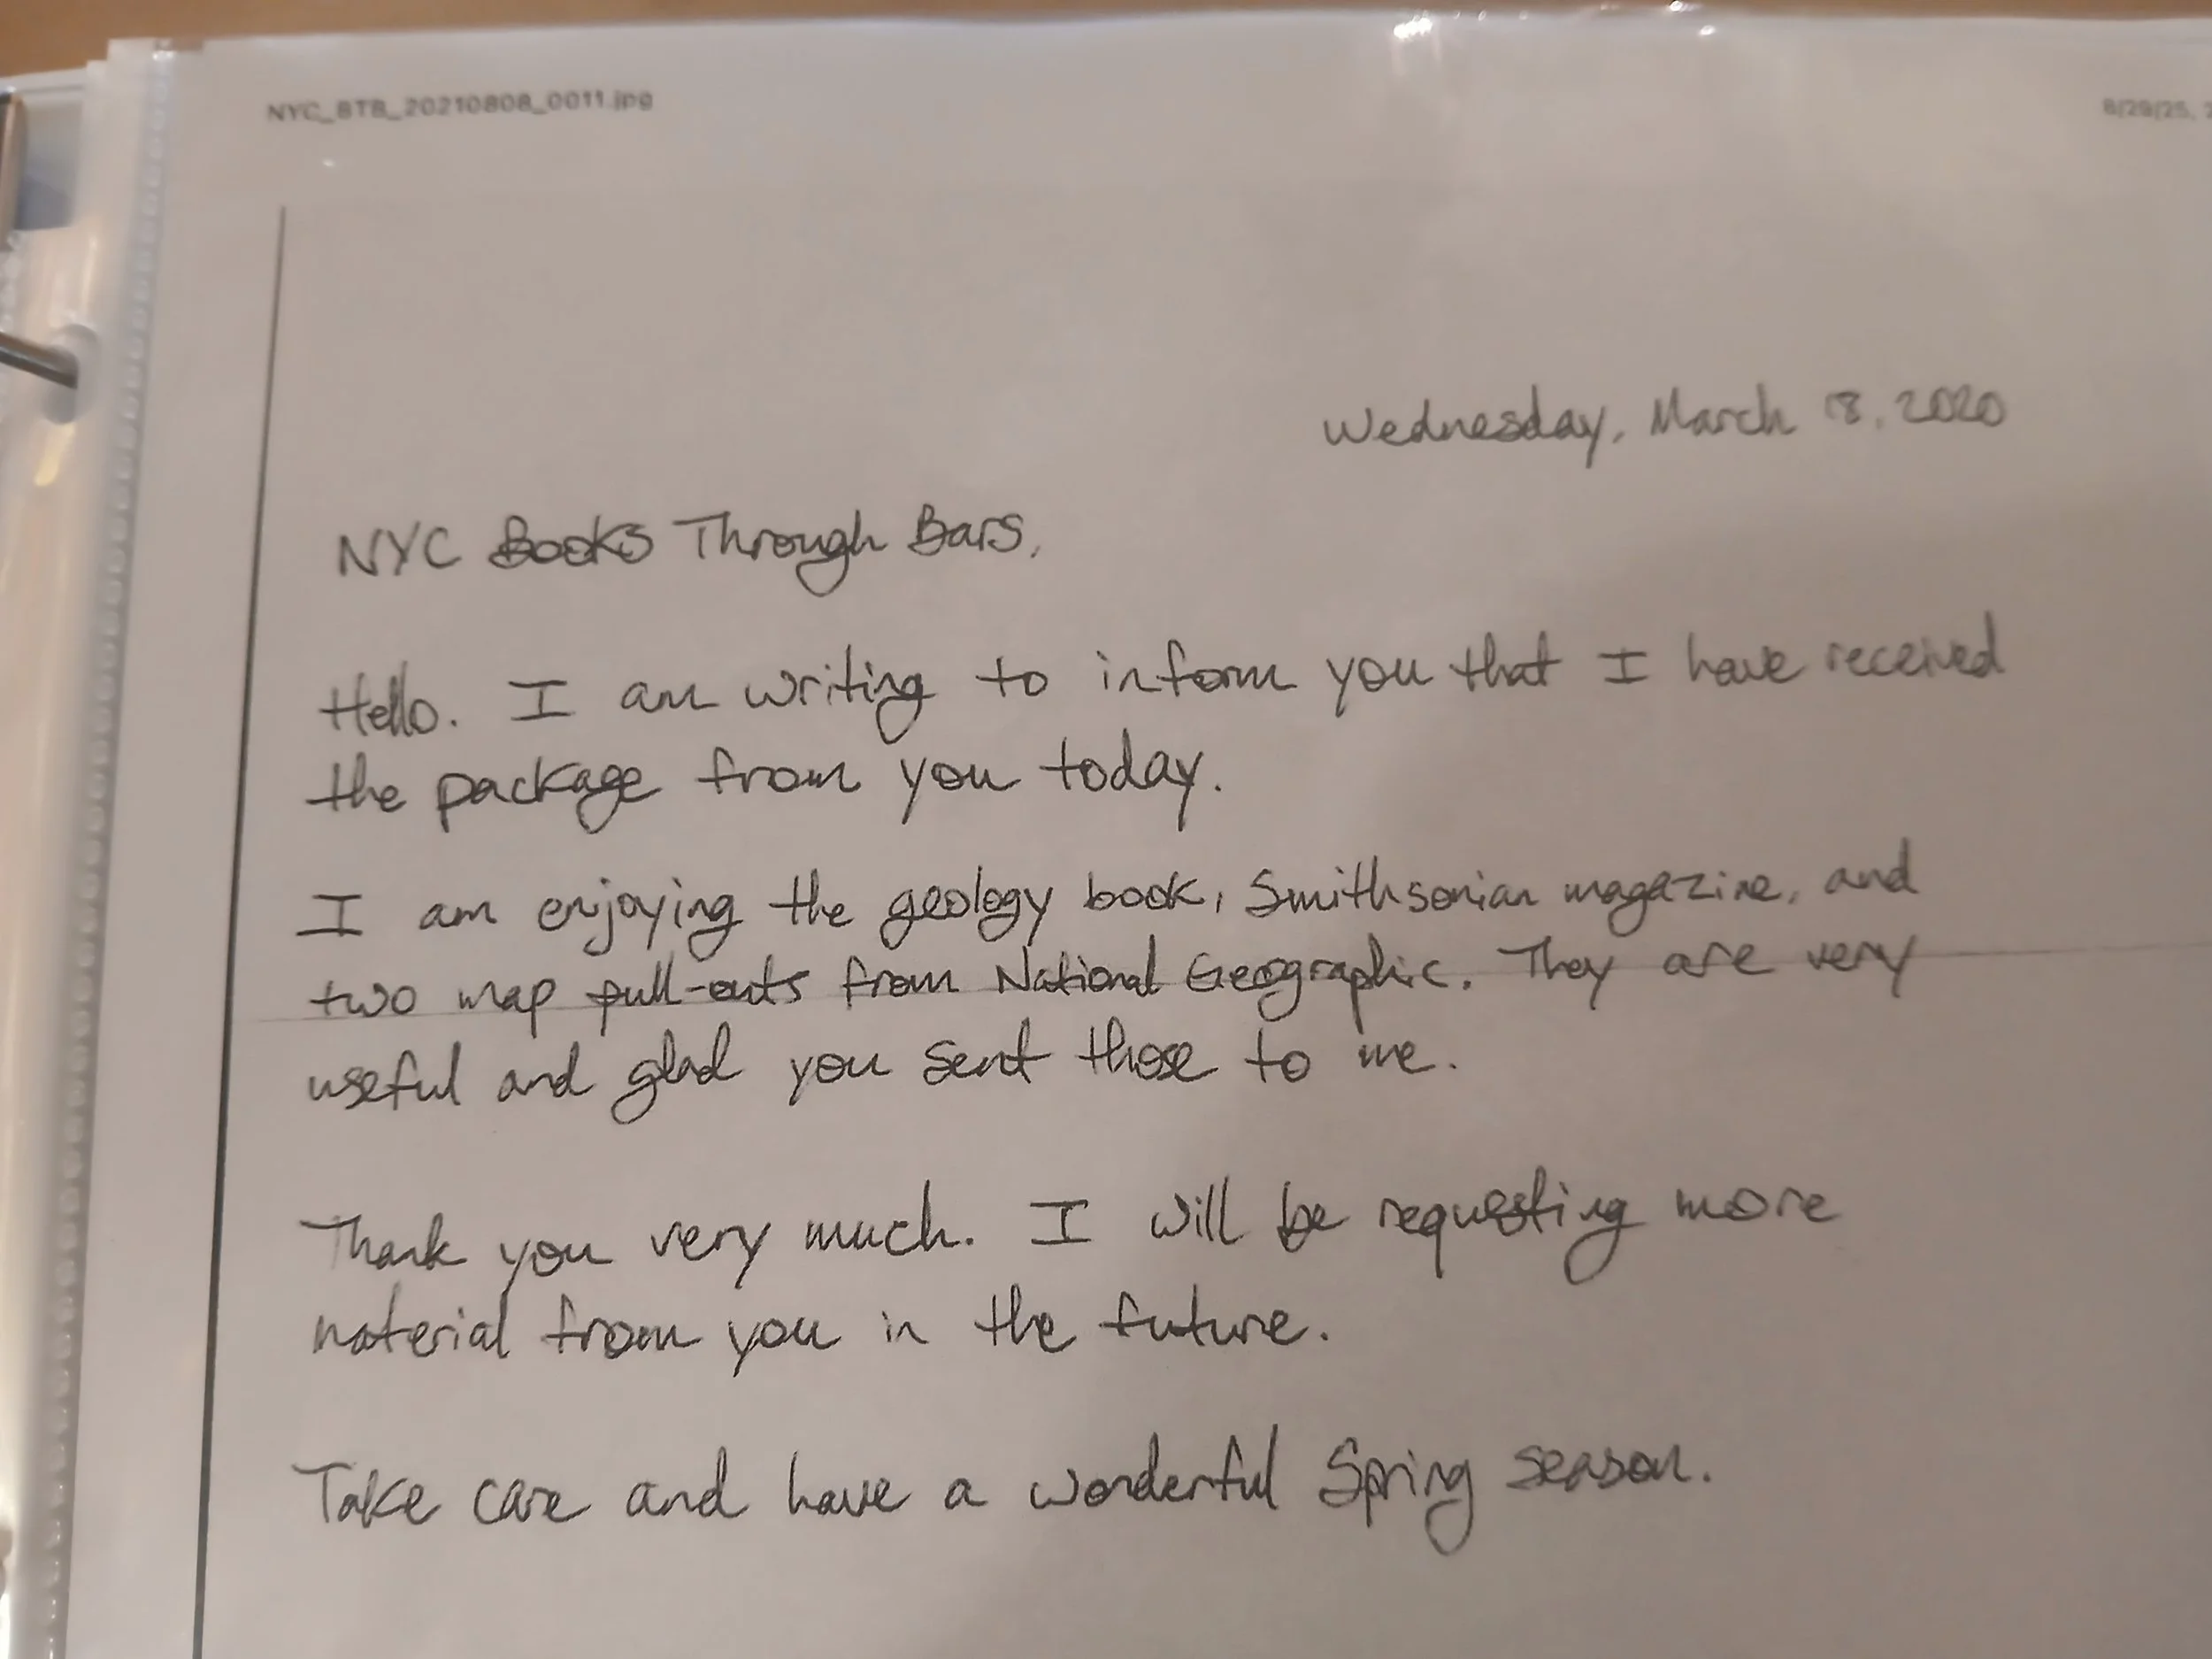 NYC_BTB_20210808_0011.jpg
8/29/25,
Wednesday, March 18, 2020
NYC Books Through Bars,
Hello. I am writing to inform you that I have received
the package from you today.
I am enjoying the geology book, Smithsonian magazine, and
two map pull-outs from National Geographic. They are very
useful and glad you sent those to me.
Thank you very much. I will be requesting more
material from you in the future.
Take care and have a wonderful Spring season.